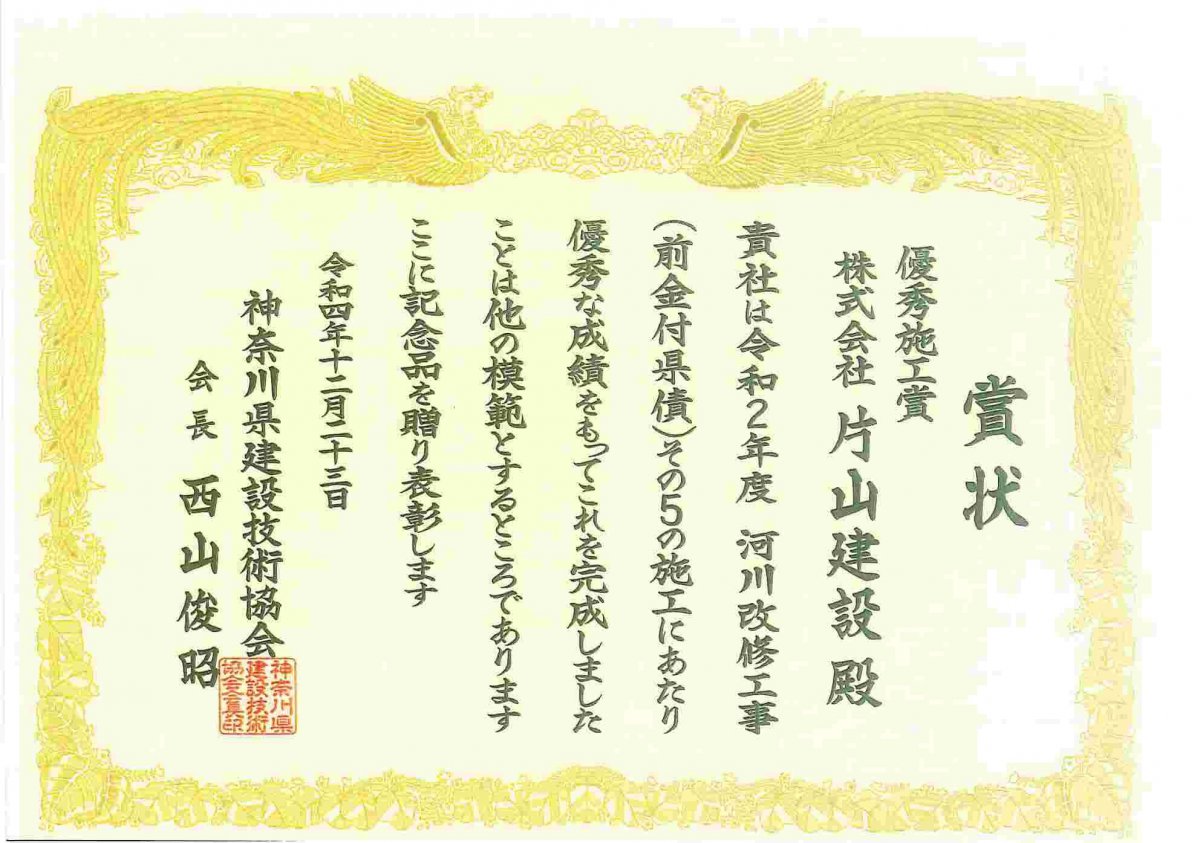 賞状
優秀施工賞
株式会社 片山建設 殿
貴社は令和2年度 河川改修工事
（前金付県債）その5の施工にあたり
優秀な成績をもってこれを完成しました
ことは他の模範とするところであります
ここに記念品を贈り表彰します
令和四年十二月二十三日
神奈川県建設技術協会
会長 西山俊昭
神奈川県
建設技術
協会之印